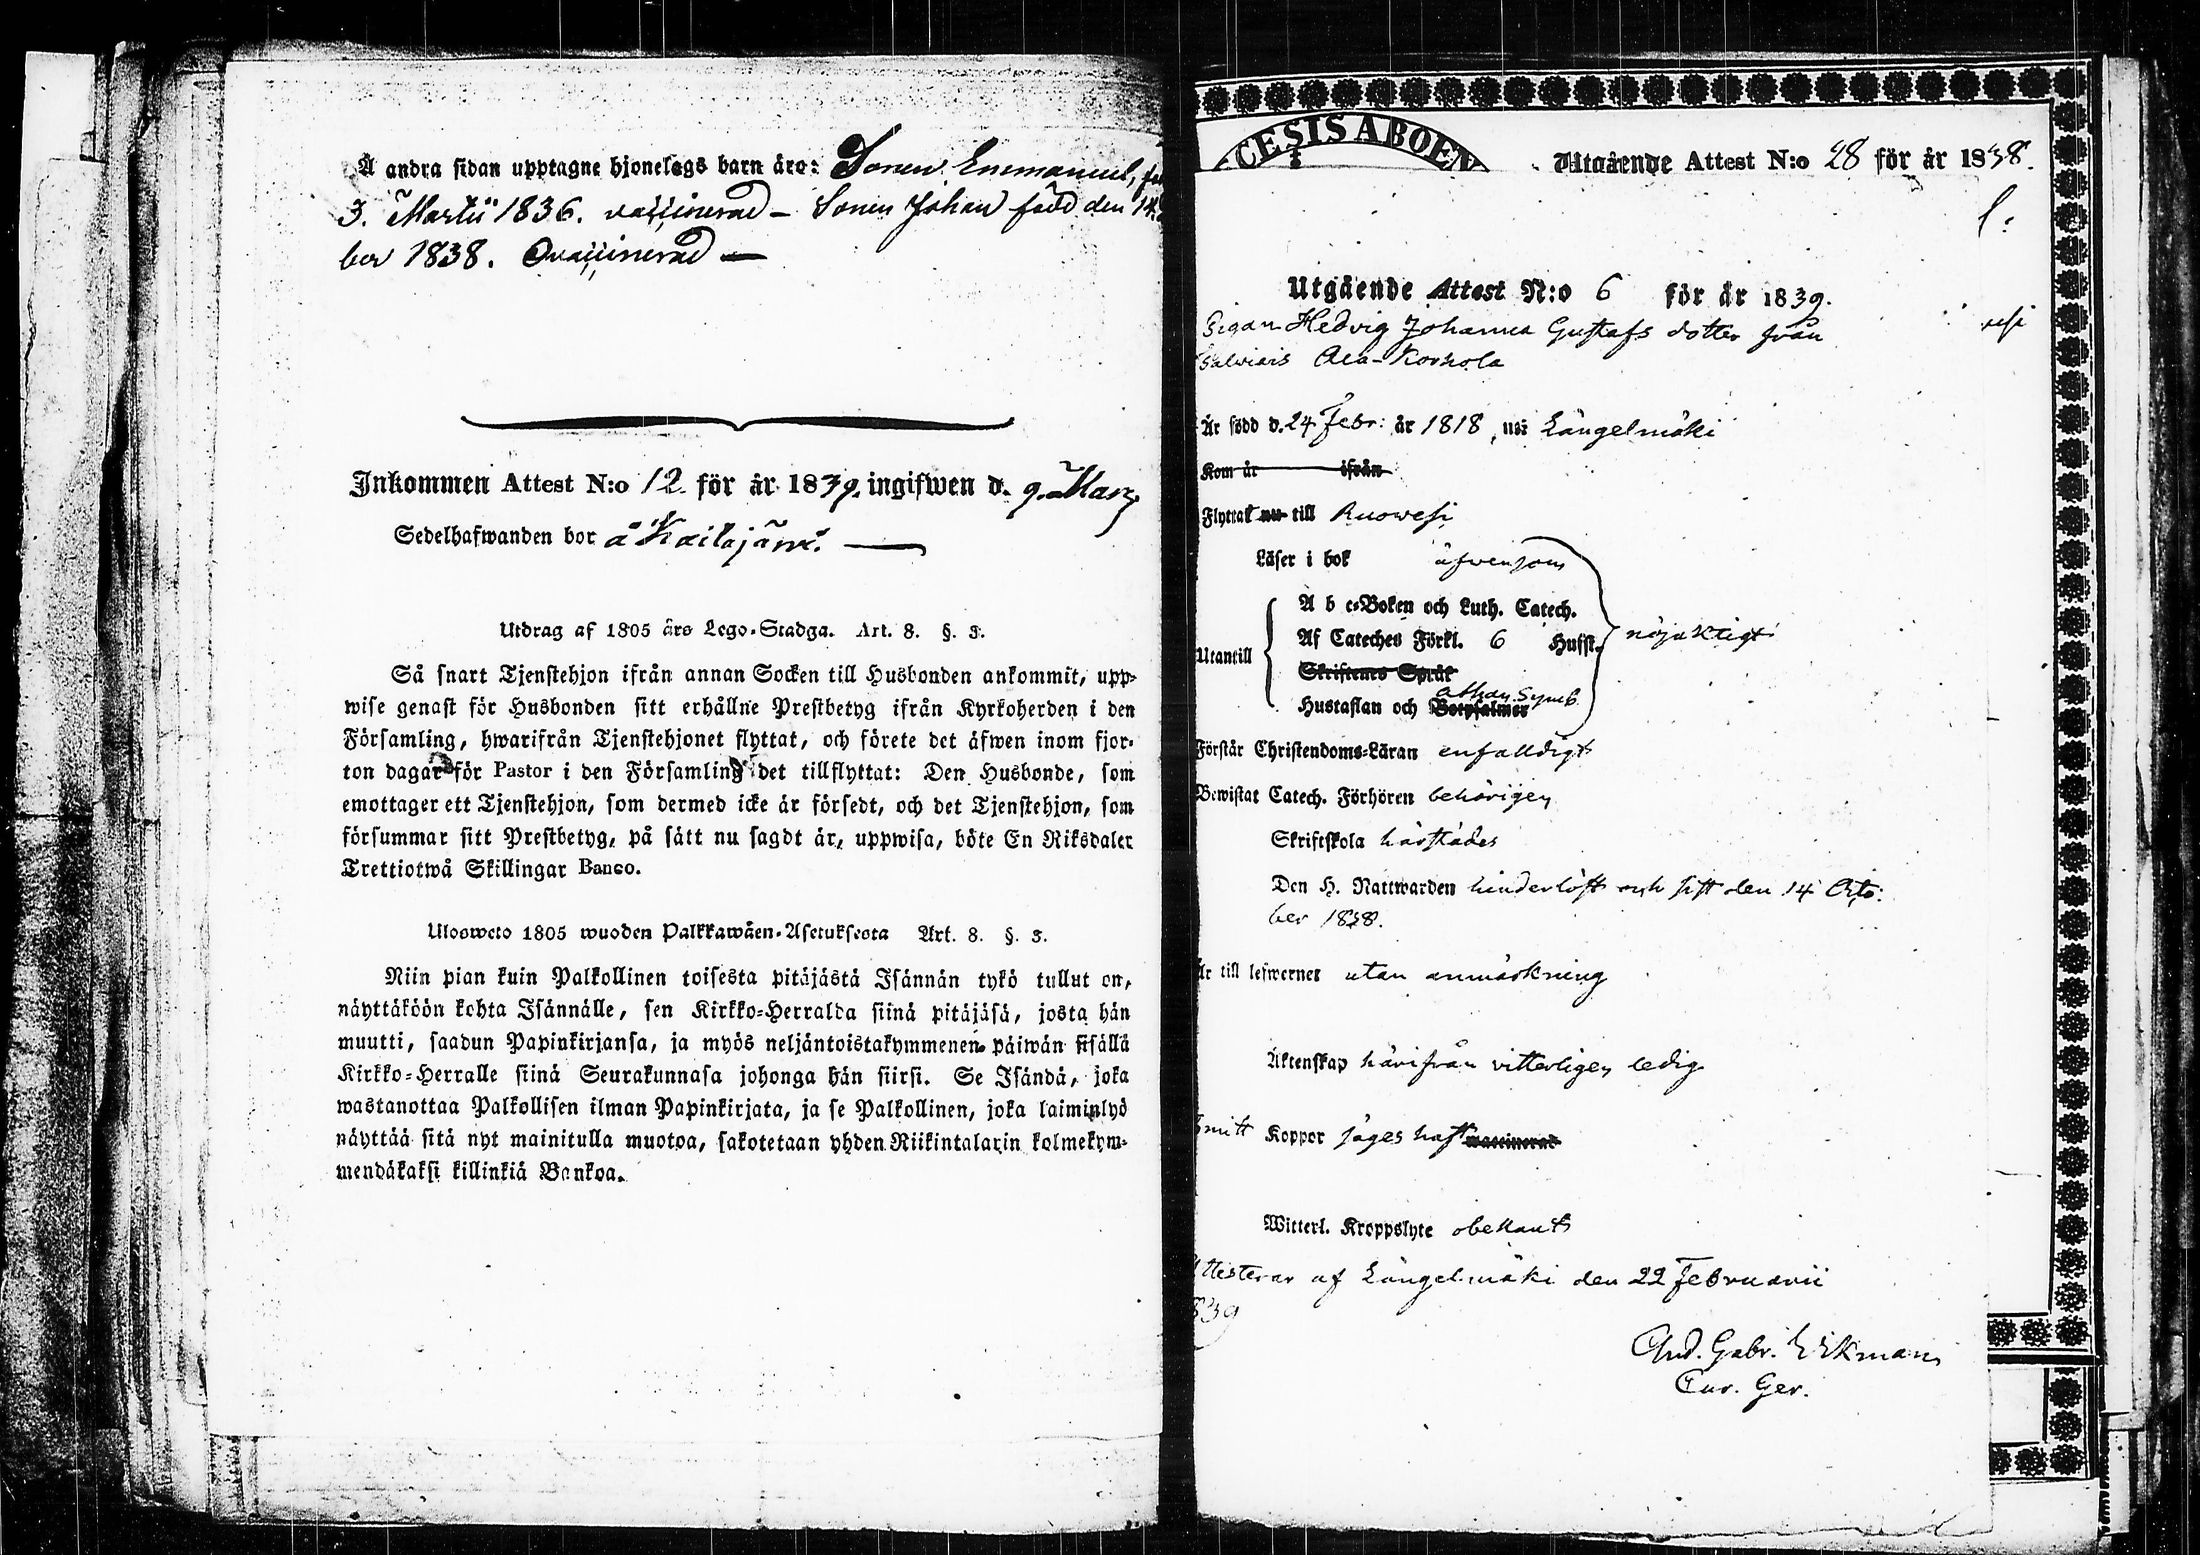 Å andra sidan upptagne hjonelags barn äro: Sonen Emmanuel,
3. Martii 1836. vaccinerad – Sonen Johan född den 14
ber 1838. Ovaccinerad —
Inkommen Attest N:o 12. för år 1839. ingifwen d. 9. Marz
Sedelhafwanden bor å Kailajärwi. —
Utdrag af 1805 års Lego-Stadga. Art. 8. §. 3.
Så snart Tjenstehjon ifrån annan Socken till Husbonden ankommit, upp-
wise genast för Husbonden sitt erhållne Prestbetyg ifrån Kyrkoherden i den
Församling, hwarifrån Tjenstehjonet flyttat, och förete det äfwen inom fjor-
ton dagar för Pastor i den Församling det tillflyttat: Den Husbonde, som
emottager ett Tjenstehjon, som dermed icke är försedt, och det Tjenstehjon, som
försummar sitt Prestbetyg, på sätt nu sagdt är, uppwisa, böte En Riksdaler
Trettiotwå Skillingar Banco.
Ulosweto 1805 wuoden Palkkawäen-Asetuksesta Art. 8. §. 3.
Niin pian kuin Palkollinen toisesta pitäjästä Isännän tykö tullut on,
näyttäköön kohta Isännälle, sen Kirkko-Herralda siinä pitäjäsä, josta hän
muutti, saadun Papinkirjansa, ja myös neljäntoistakymmenen päiwän sisällä
Kirkko-Herralle siinä Seurakunnasa johonga hän siirsi. Se Isändä, joka
wastanottaa Palkollisen ilman Papinkirjata, ja se Palkollinen, joka laiminlyö
näyttää sitä nyt mainitulla muotoa, sakotetaan yhden Riikintalarin kolmekym-
mendäkaksi killinkiä Bankoa.
CESIS ABOEN
Utgående Attest N:o 28 för år 1838.
Utgående Attest N:o 6 för år 1839.
Pigan Hedvig Johanna Gustafs dotter från
Ala-Korkola
Är född d. 24 Febr: år 1818, uti Längelmäki
Kom år ifrån
Flyttat nu till Ruowesi
Läser i bok äfwensom
A b c-Boken och Luth. Catech.
Af Cateches Förkl. 6 Hufst. nöjaktigt
Utantill
Skriftenes Språk
Athan. Symb.
Hustaflan och Botpsalmer
Förstår Christendoms-Läran enfalldigt
Bewistat Catech. Förhören behörigen
Skriftskola härstädes
Den H. Nattwarden hinderlöst och sist den 14 Octo:
ber 1838.
Är till lefwernet utan anmärkning
Äktenskap härifrån vitterligen ledig
Smitt Koppor säges haft waccinerad
Witterl. Kroppslyte obekant
Attesterar af Längelmäki den 22 Februarii
839
And. Gabr. Eckman
Cur. Ger.